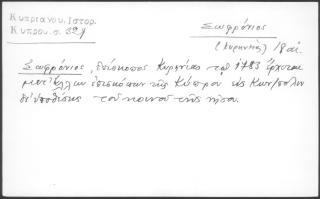 Κυπριανου, Ιστορ.
Κυπρου, σ. 321
Σωφρόνιος
(Κυρηνείας) 18 αἰ.
Σωφρόνιος, ἐπίσκοπος Κυρηνίας τῷ 1783 ἔρχεται
μετ' ἄλλων ἐπισκόπων τῆς Κύπρου εἰς Κων/πολιν
δι' ὑποθέσεις τοῦ κοινοῦ τῆς νήσου.